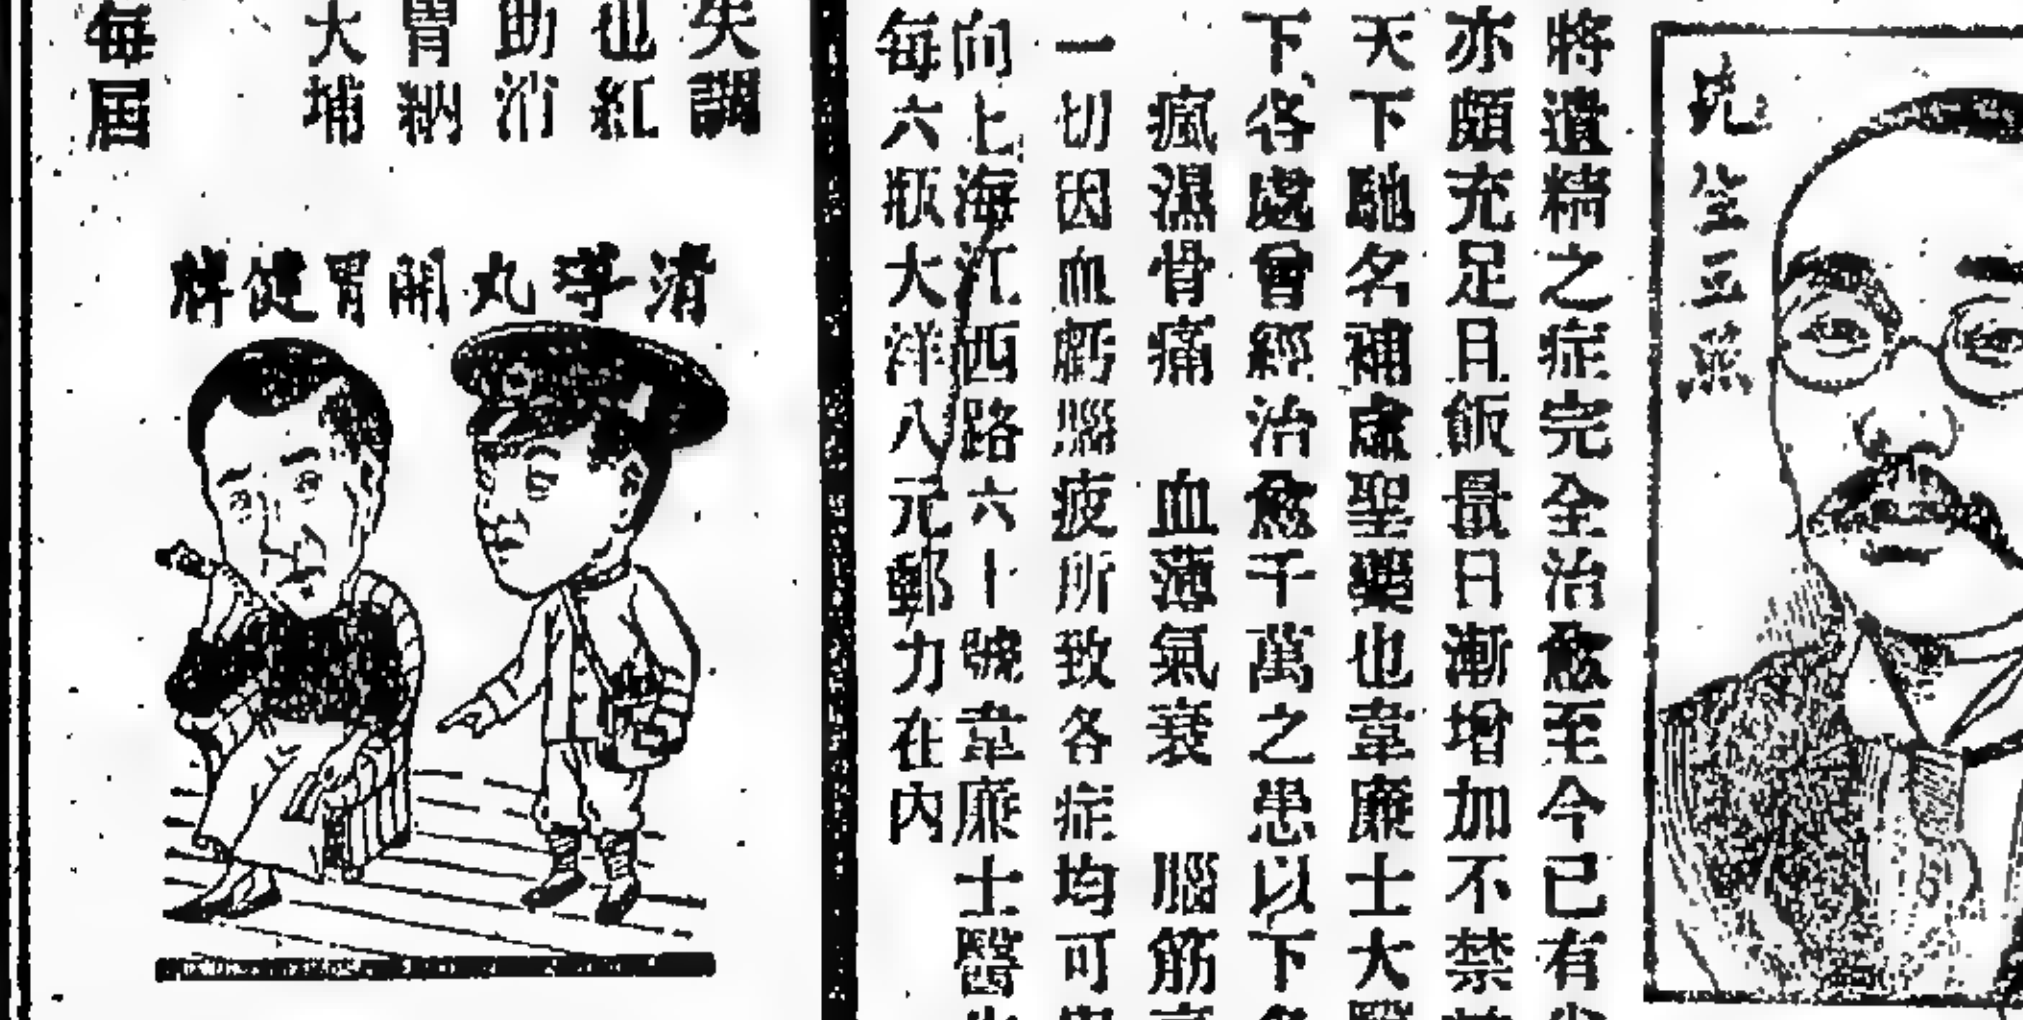 先生玉照
將遺精之症完全治愈至今已有
亦頗充足且飯量日漸增加不禁
天下馳名補虛聖藥也韋廉士大醫
下各處曾經治愈千萬之患以下各
瘋濕骨痛 血薄氣衰 腦筋
一切因血虧腦疲所致各症均可
向上海江西路六十號韋廉士醫生
每六瓶大洋八元郵力在內
失調
也紅
助消
胃納
大埔
每屆
清導丸開胃健脾